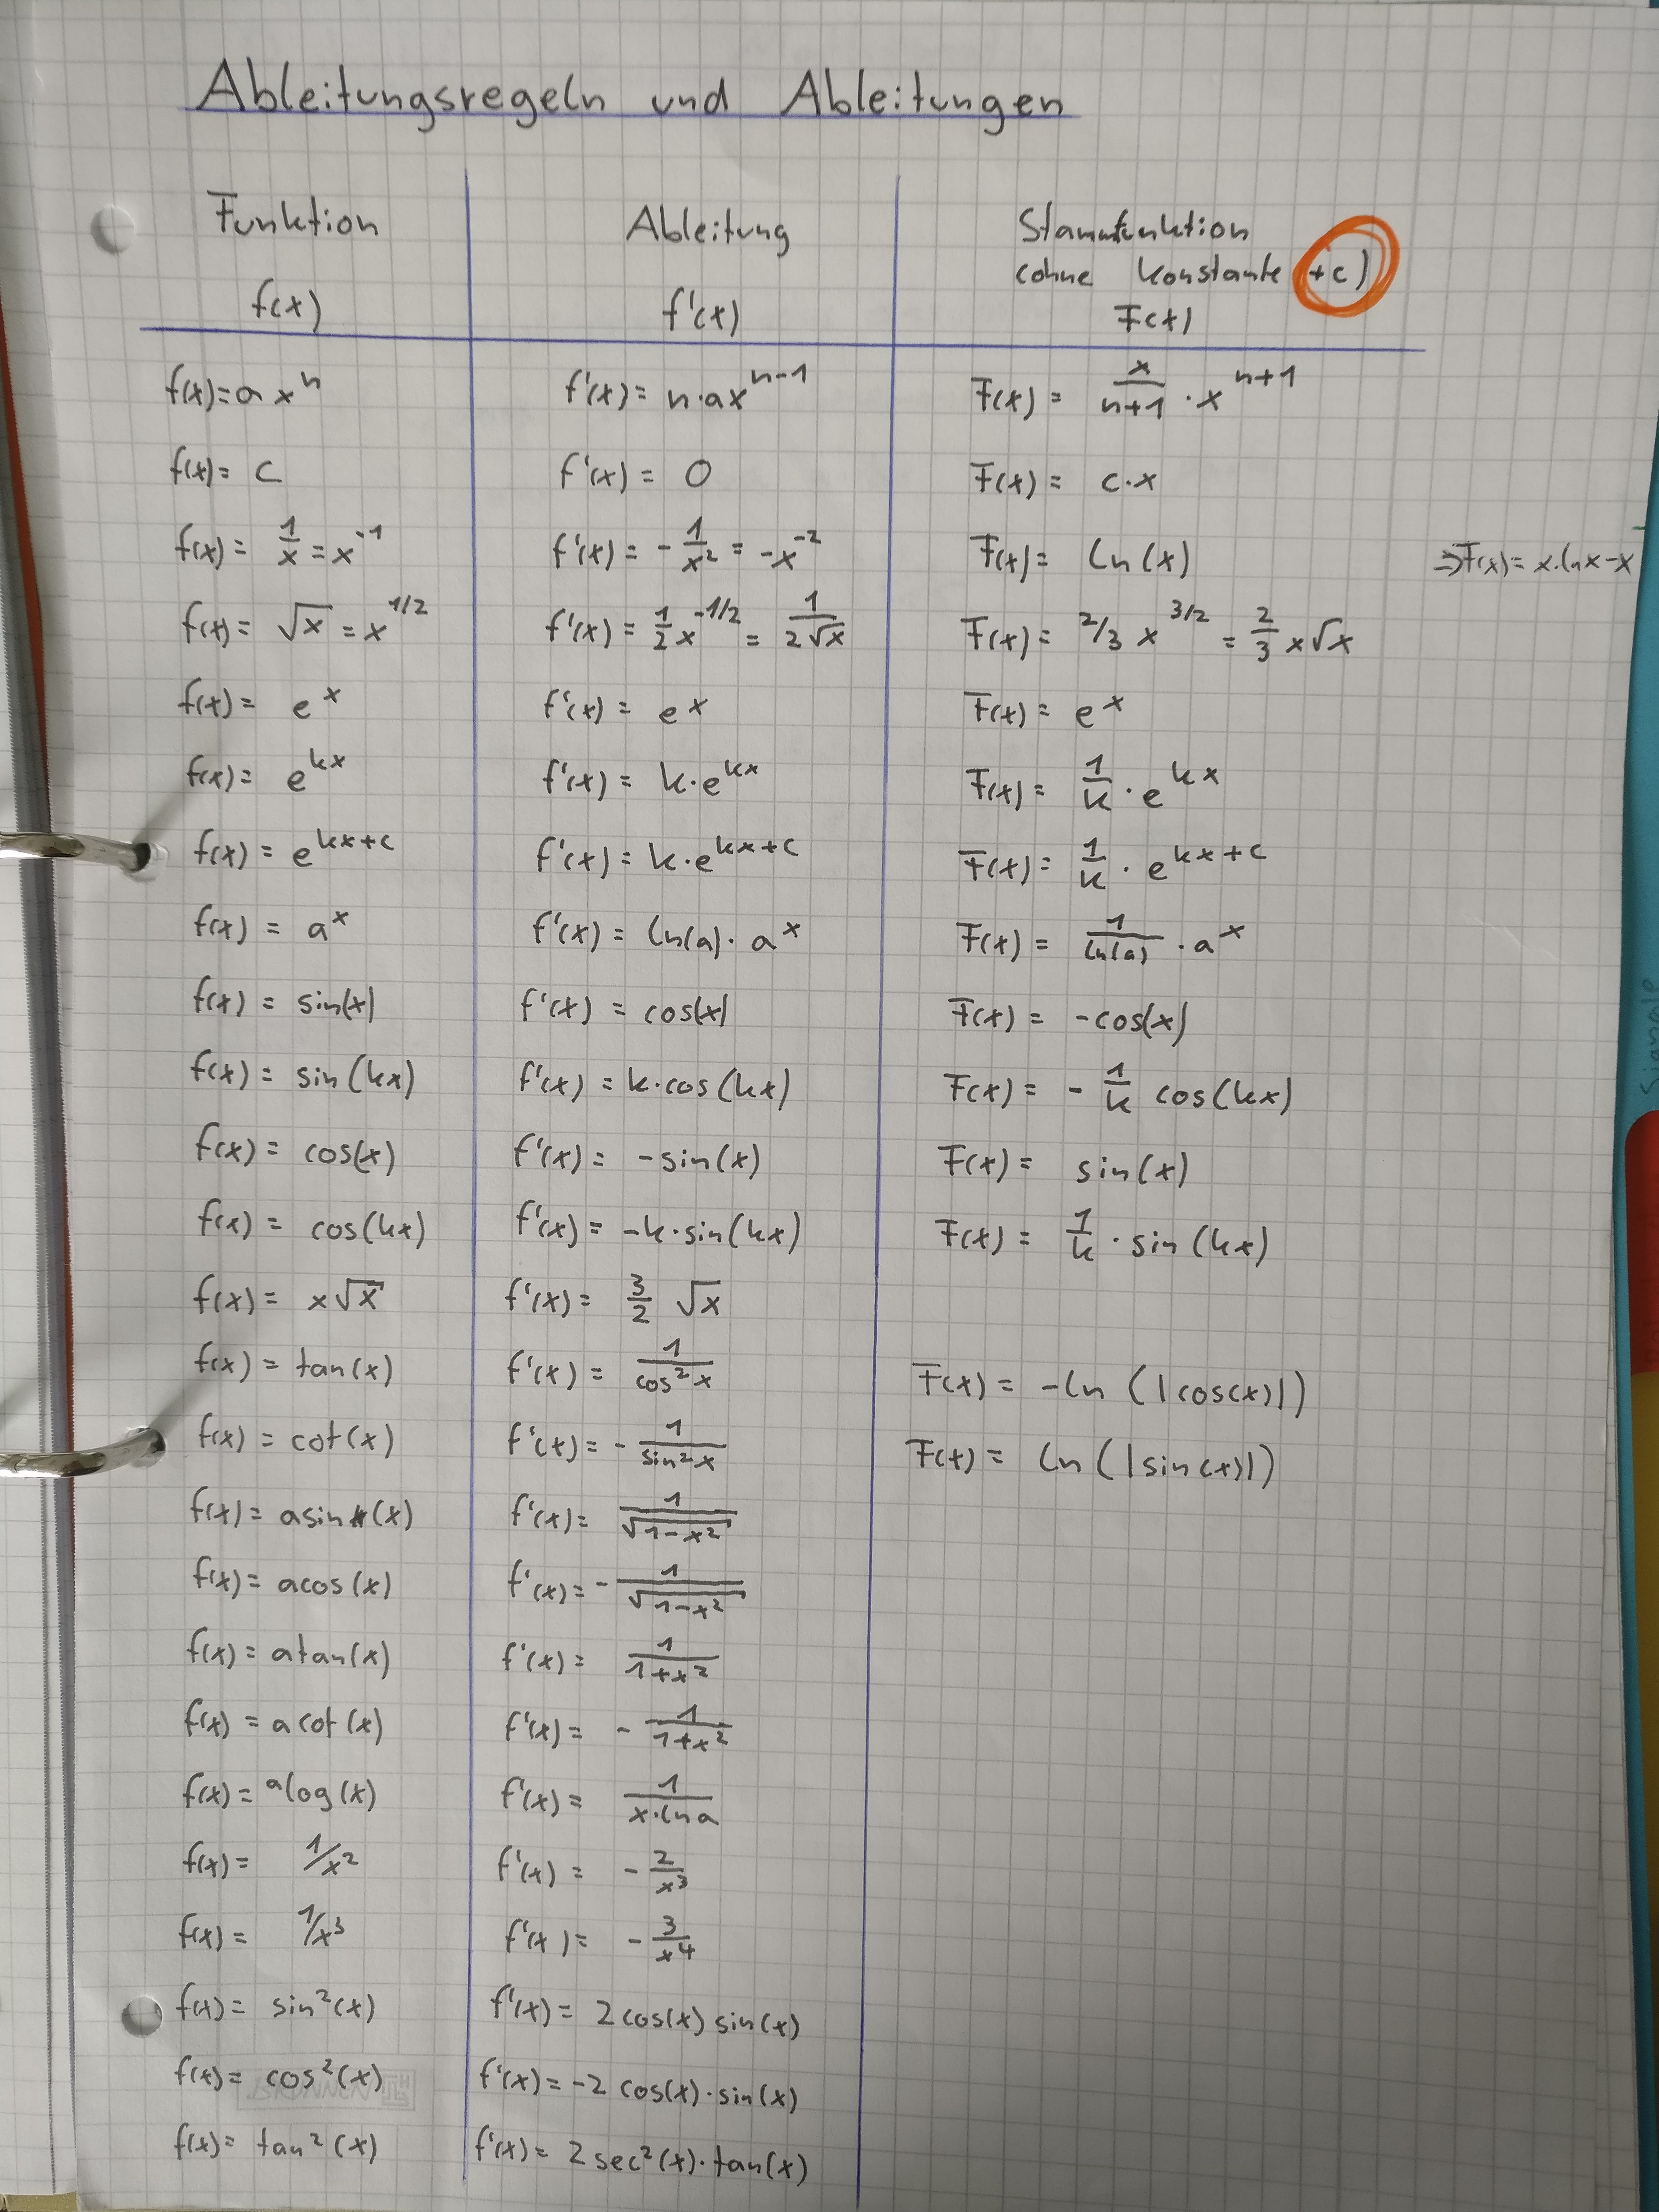 Ableitungsregeln und Ableitungen
Funktion Ableitung Stammfunktion
(ohne Konstante +c)
f(x) f'(x) F(x)
f(x)= a x^n f'(x) = n·ax^(n-1) F(x) = x/(n+1) · x^(n+1)
f(x)= c f'(x) = 0 F(x) = c·x
f(x) = 1/x = x^-1 f'(x) = - 1/x² = -x^-2 F(x) = ln(x) ⇒F(x) = x·lnx-x
f(x) = √x = x^1/2 f'(x) = 1/2 x^-1/2 = 1/(2√x) F(x) = 2/3 x^3/2 = 2/3 x√x
f(x) = e^x f'(x) = e^x F(x) = e^x
f(x) = e^kx f'(x) = k·e^kx F(x) = 1/k · e^kx
f(x) = e^(kx+c) f'(x) = k·e^(kx+c) F(x) = 1/k · e^(kx+c)
f(x) = a^x f'(x) = ln(a) · a^x F(x) = 1/ln(a) · a^x
f(x) = sin(x) f'(x) = cos(x) F(x) = -cos(x)
f(x) = sin(kx) f'(x) = k·cos(kx) F(x) = - 1/k cos(kx)
f(x) = cos(x) f'(x) = -sin(x) F(x) = sin(x)
f(x) = cos(kx) f'(x) = -k·sin(kx) F(x) = 1/k · sin(kx)
f(x) = x√x f'(x) = 3/2 √x
f(x) = tan(x) f'(x) = 1/cos²x F(x) = -ln (|cos(x)|)
f(x) = cot(x) f'(x) = - 1/sin²x F(x) = ln (|sin(x)|)
f(x) = asin(x) f'(x) = 1/√(1-x²)
f(x) = acos(x) f'(x) = - 1/√(1-x²)
f(x) = atan(x) f'(x) = 1/(1+x²)
f(x) = acot(x) f'(x) = - 1/(1+x²)
f(x) = ᵃlog(x) f'(x) = 1/(x·ln a)
f(x) = 1/x² f'(x) = - 2/x³
f(x) = 1/x³ f'(x) = - 3/x⁴
f(x) = sin²(x) f'(x) = 2 cos(x) sin(x)
f(x) = cos²(x) f'(x) = -2 cos(x)·sin(x)
BRUNNEN
f(x) = tan²(x) f'(x) = 2 sec²(x)·tan(x)